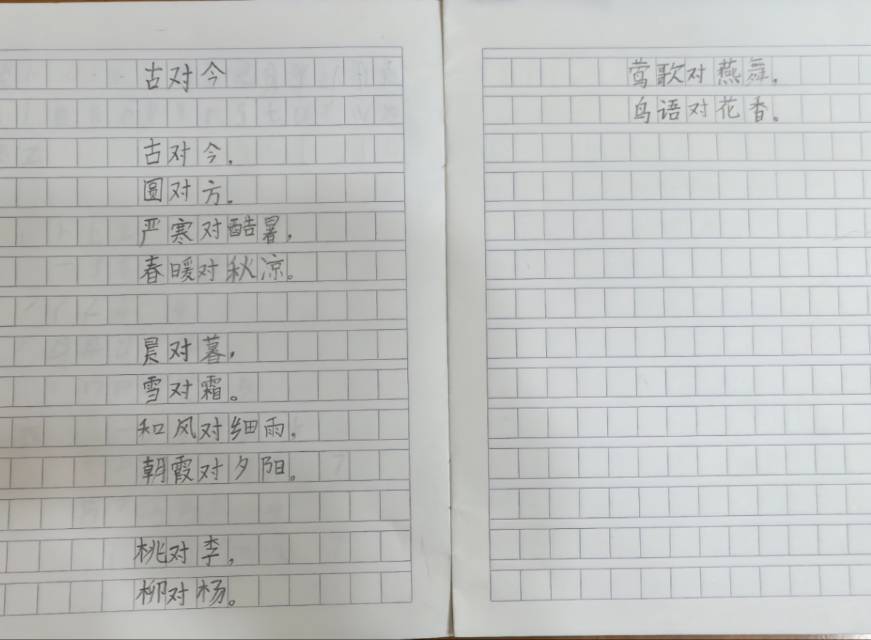 古对今
古对今，
圆对方。
严寒对酷暑，
春暖对秋凉。
晨对暮，
雪对霜。
和风对细雨，
朝霞对夕阳。
桃对李，
柳对杨。
莺歌对燕舞，
鸟语对花香。